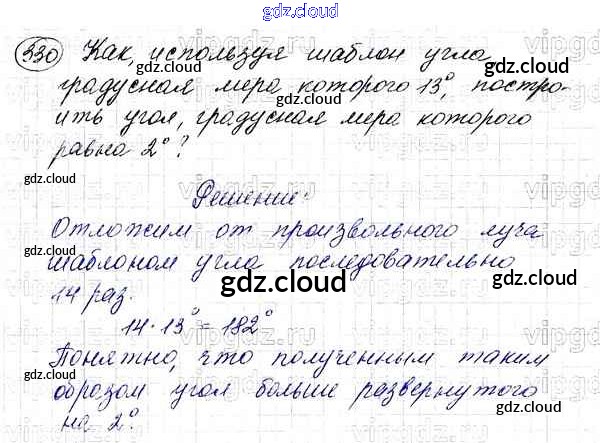 gdz.cloud
330 Как, используя шаблон угла,
градусная мера которого 13°, постро-
ить угол, градусная мера которого
равна 2°?
Решение:
Отложим от произвольного луча
шаблоном угла последовательно
14 раз.
14·13°=182°
Понятно, что полученным таким
образом угол больше развернутого
на 2°.
gdz.cloud
gdz.cloud
gdz.cloud
gdz.cloud
gdz.cloud
gdz.cloud
gdz.cloud
gdz.cloud
gdz.cloud